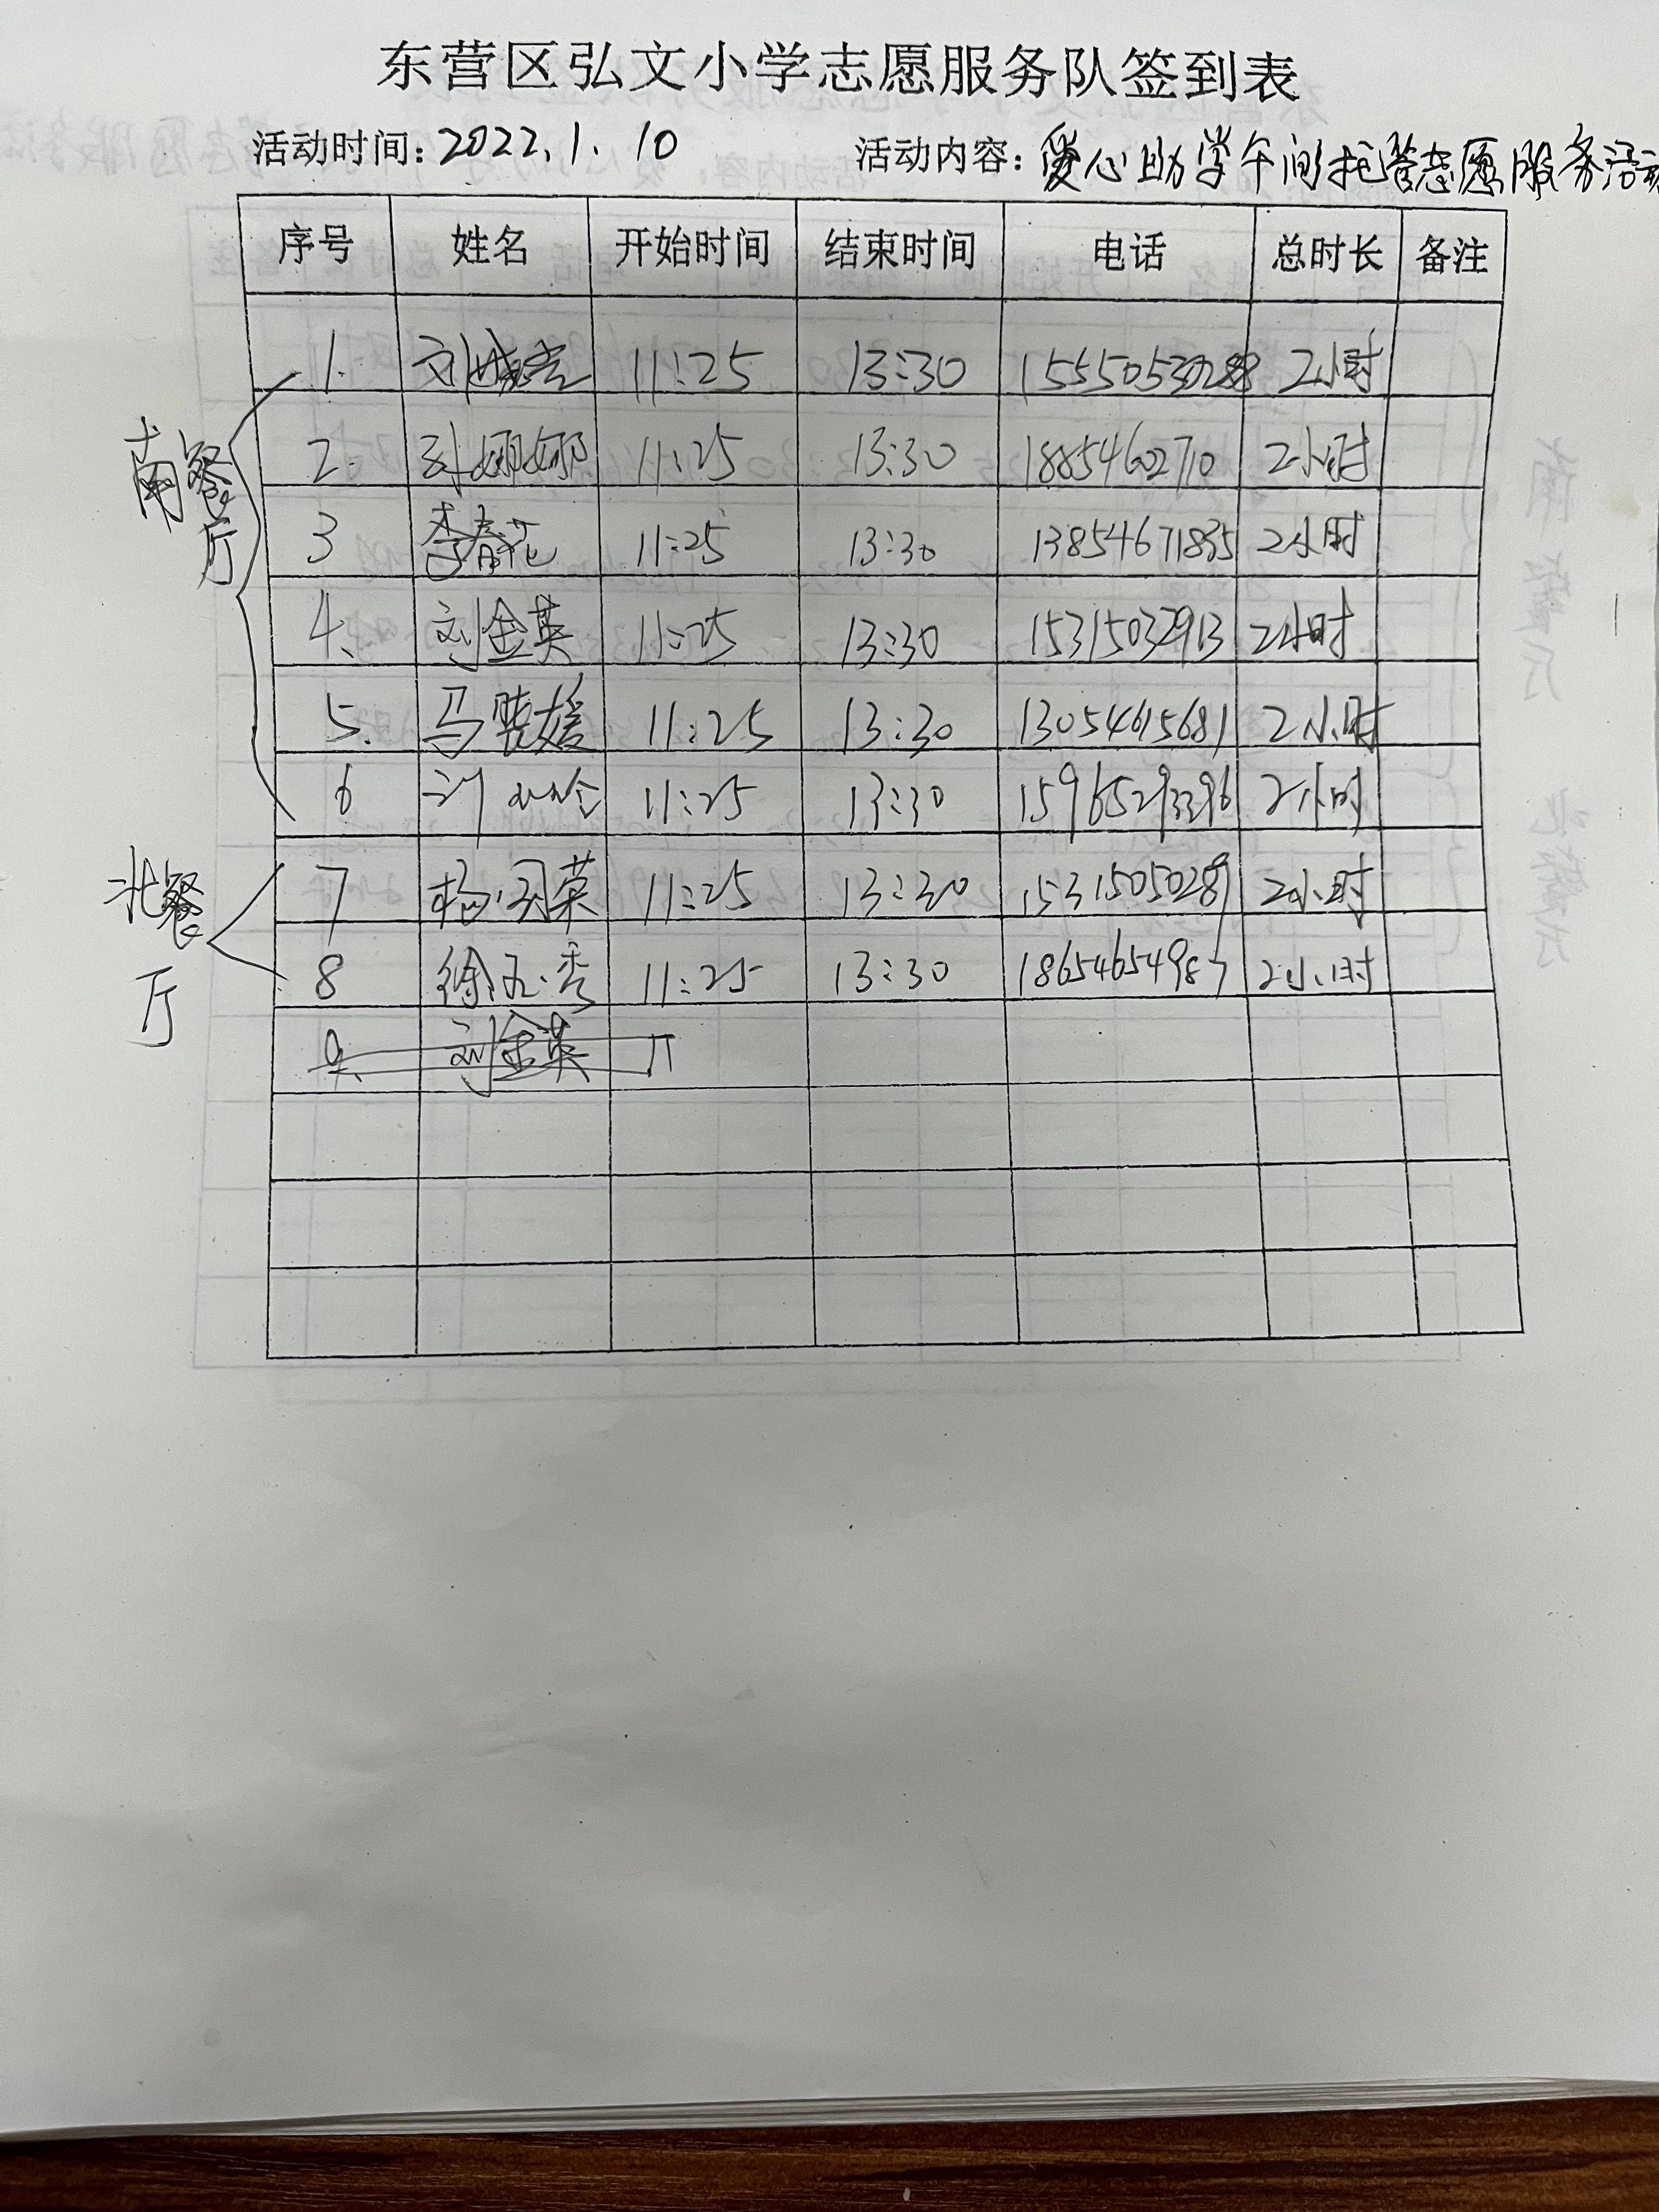 东营区弘文小学志愿服务队签到表
活动时间：2022.1.10 活动内容：爱心助学午间托管志愿服务活动
序号 姓名 开始时间 结束时间 电话 总时长 备注
南餐厅
1. 刘 11:25 13:30 2小时
2. 11:25 13:30 18854602710 2小时
3 李春花 11:25 13:30 13854671835 2小时
4. 刘金英 11:25 13:30 15315032913 2小时
5. 马 媛 11:25 13:30 13054615681 2小时
6 11:25 13:30 15965293296 2小时
北餐厅
7 杨 英 11:25 13:30 15315050289 2小时
8 徐玉秀 11:25 13:30 2小时
9. 刘金英 11